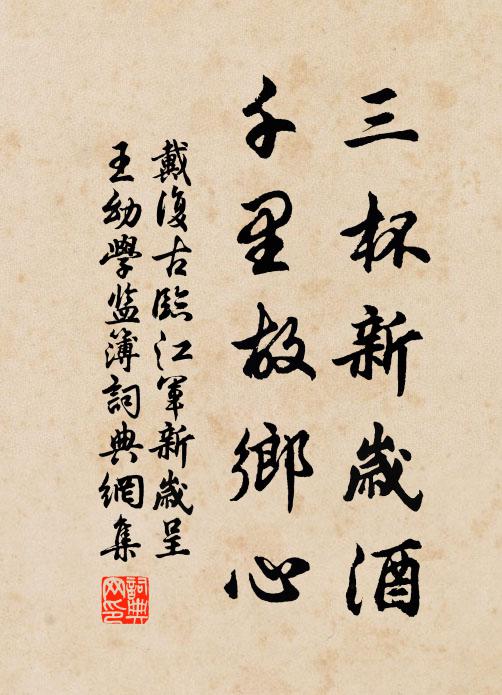 三杯新歲酒
千里故鄉心
戴復古臨江軍新歲呈
王幼學監簿詞典網集
詞典
网印